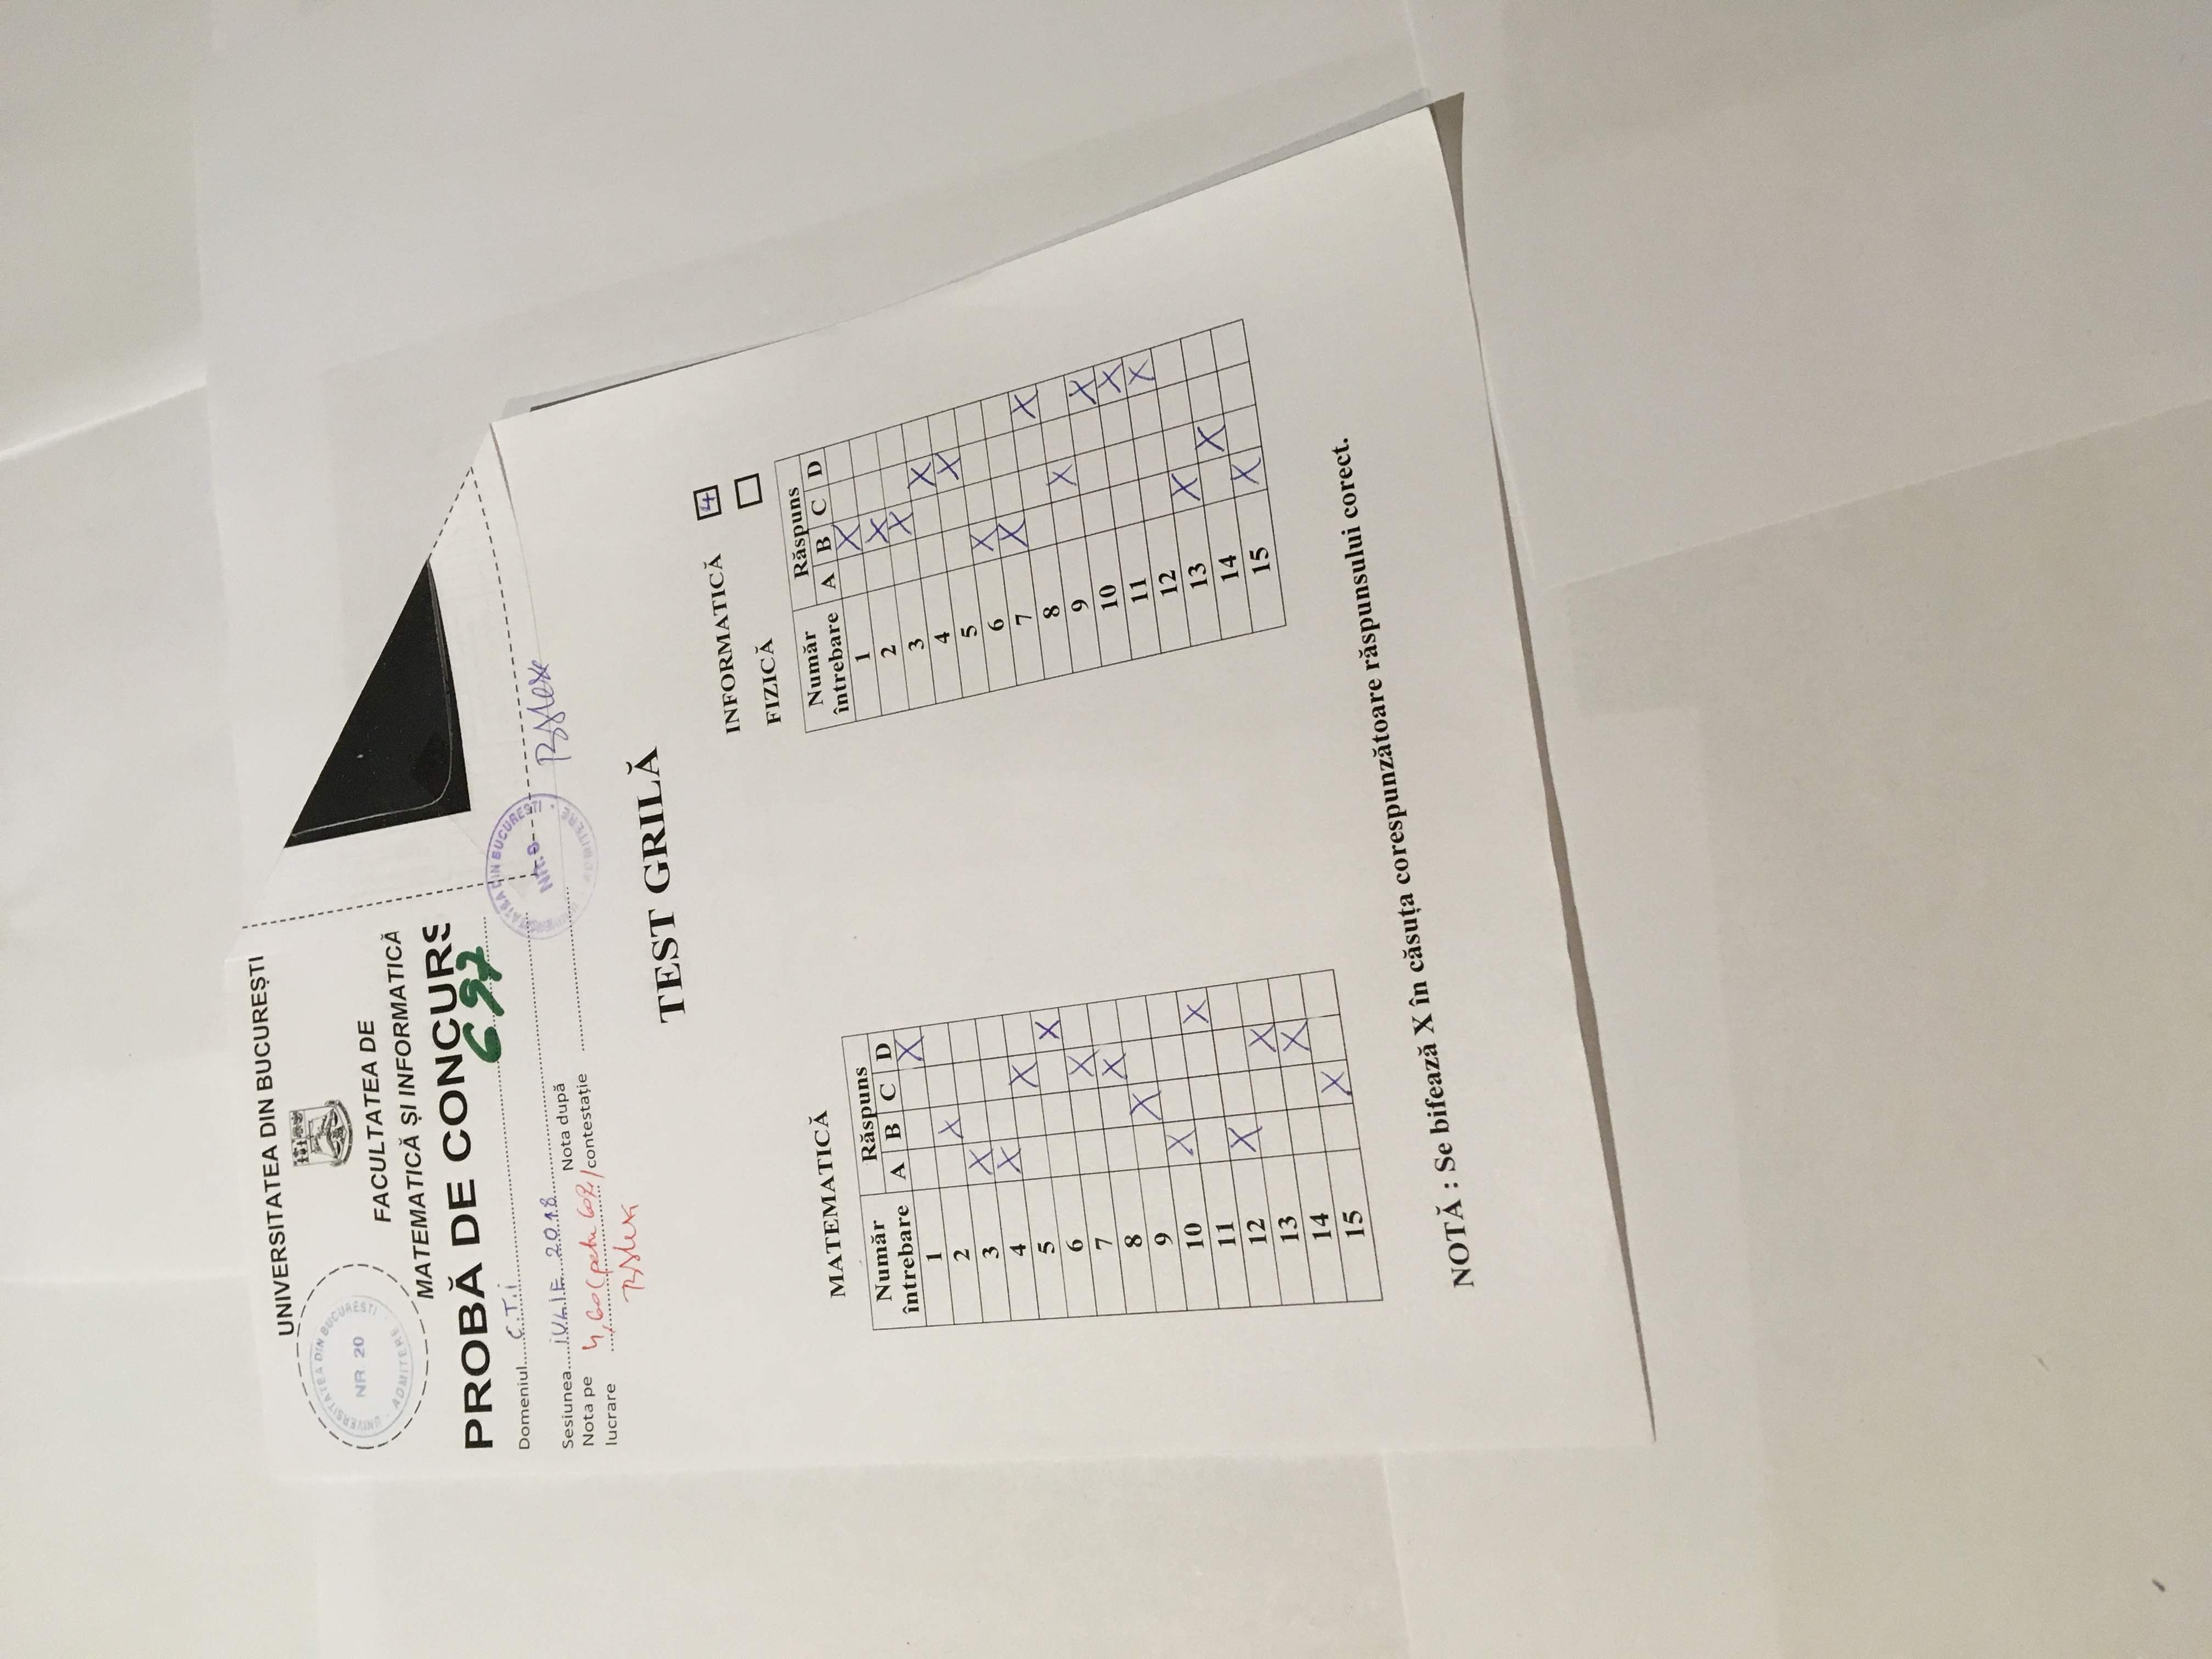 UNIVERSITATEA DIN BUCUREȘTI
UNIVERSITATEA DIN BUCUREȘTI
NR. 20
ADMITERE
FACULTATEA DE
MATEMATICĂ ȘI INFORMATICĂ
PROBĂ DE CONCURS
697
Domeniul C.T.i
Sesiunea IULIE 2018
Nota pe lucrare 4,60
Nota după contestație
DIN BUCUREȘTI
ADMITERE
TEST GRILĂ
INFORMATICĂ 4
FIZICĂ
MATEMATICĂ
Număr întrebare Răspuns
A B C D
1 X
2 X
3 X
4 X
5 X
6 X
7 X
8 X
9 X
10 X
11 X
12 X
13 X
14 X
15 X
Număr întrebare Răspuns
A B C D
1 X
2 X
3 X
4 X
5 X
6 X
7 X
8 X
9 X
10 X
11 X
12 X
13 X
14 X
15 X
NOTĂ : Se bifează X în căsuța corespunzătoare răspunsului corect.